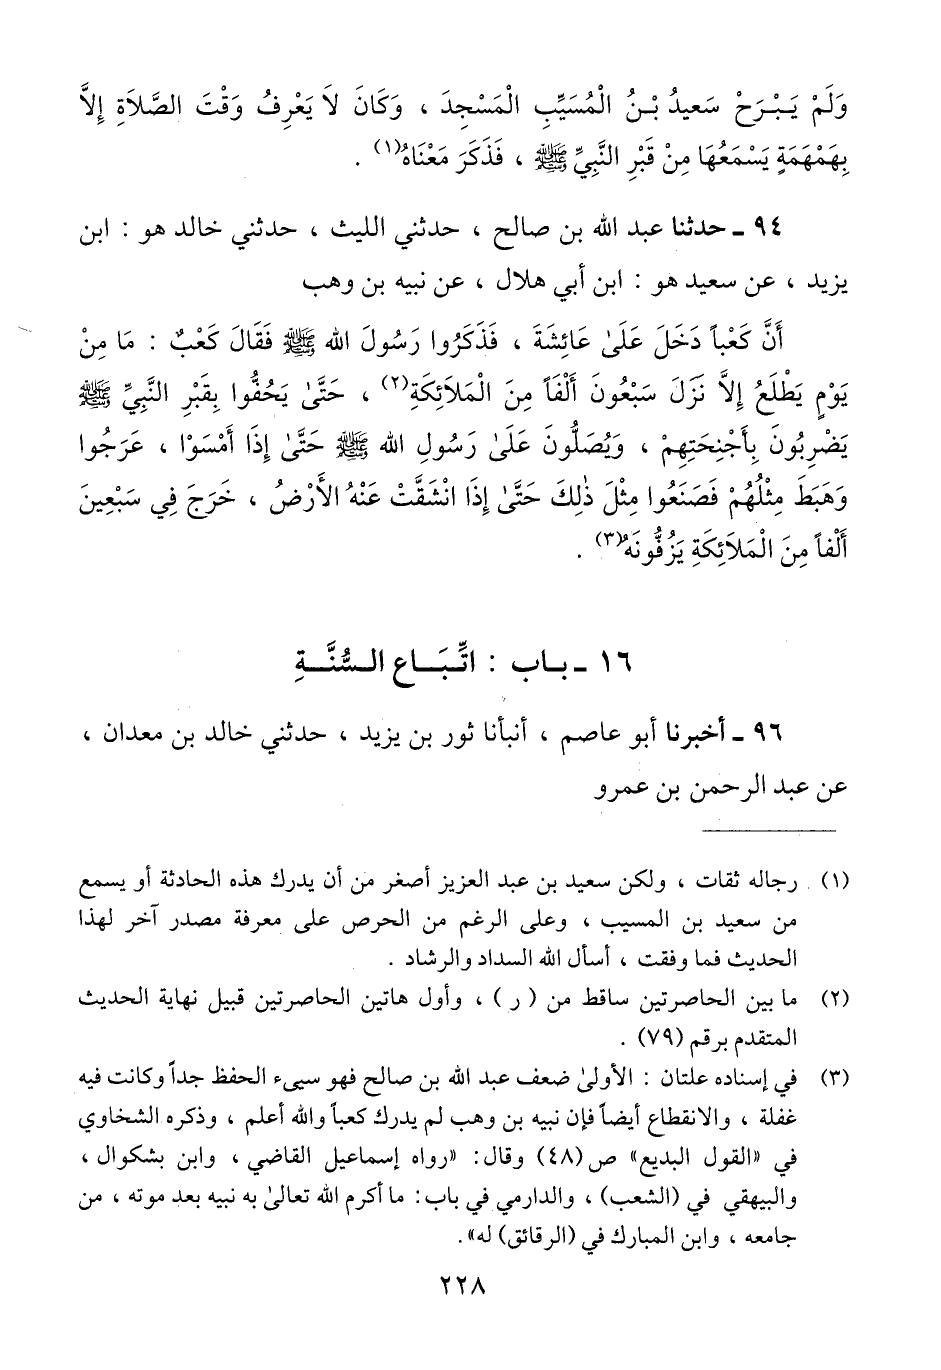 وَلَمْ يَبْرَحْ سَعِيدُ بْنُ الْمُسَيِّبِ الْمَسْجِدَ ، وَكَانَ لاَ يَعْرِفُ وَقْتَ الصَّلاَةِ إِلاَّ
بِهَمْهَمَةٍ يَسْمَعُهَا مِنْ قَبْرِ النَّبِيِّ ﷺ ، فَذَكَرَ مَعْنَاهُ(١) .
٩٤ ـ حدثنا عبد الله بن صالح ، حدثني الليث ، حدثني خالد هو : ابن
يزيد ، عن سعيد هو : ابن أبي هلال ، عن نبيه بن وهب
أَنَّ كَعْباً دَخَلَ عَلَىٰ عَائِشَةَ ، فَذَكَرُوا رَسُولَ الله ﷺ فَقَالَ كَعْبٌ : مَا مِنْ
يَوْمٍ يَطْلَعُ إِلاَّ نَزَلَ سَبْعُونَ أَلْفَاً مِنَ الْمَلاَئِكَةِ(٢) ، حَتَّىٰ يَحُفُّوا بِقَبْرِ النَّبِيِّ ﷺ
يَضْرِبُونَ بِأَجْنِحَتِهِمْ ، وَيُصَلُّونَ عَلَىٰ رَسُولِ الله ﷺ حَتَّىٰ إِذَا أَمْسَوْا ، عَرَجُوا
وَهَبَطَ مِثْلُهُمْ فَصَنَعُوا مِثْلَ ذٰلِكَ حَتَّىٰ إِذَا انْشَقَّتْ عَنْهُ الأَرْضُ ، خَرَجَ فِي سَبْعِينَ
أَلْفاً مِنَ الْمَلاَئِكَةِ يَزُفُّونَهُ(٣) .
١٦ ـ بـاب : اتِّبَـاع السُّنَّـةِ
٩٦ ـ أخبرنا أبو عاصم ، أنبأنا ثور بن يزيد ، حدثني خالد بن معدان ،
عن عبد الرحمن بن عمرو
(١) رجاله ثقات ، ولكن سعيد بن عبد العزيز أصغر من أن يدرك هذه الحادثة أو يسمع
من سعيد بن المسيب ، وعلى الرغم من الحرص على معرفة مصدر آخر لهذا
الحديث فما وفقت ، أسأل الله السداد والرشاد .
(٢) ما بين الحاصرتين ساقط من ( ر ) ، وأول هاتين الحاصرتين قبيل نهاية الحديث
المتقدم برقم (٧٩) .
(٣) في إسناده علتان : الأولىٰ ضعف عبد الله بن صالح فهو سيىء الحفظ جداً وكانت فيه
غفلة ، والانقطاع أيضاً فإن نبيه بن وهب لم يدرك كعباً والله أعلم ، وذكره الشخاوي
في «القول البديع» ص (٤٨) وقال: «رواه إسماعيل القاضي ، وابن بشكوال ،
والبيهقي في (الشعب) ، والدارمي في باب: ما أكرم الله تعالىٰ به نبيه بعد موته ، من
جامعه ، وابن المبارك في (الرقائق) له».
٢٢٨